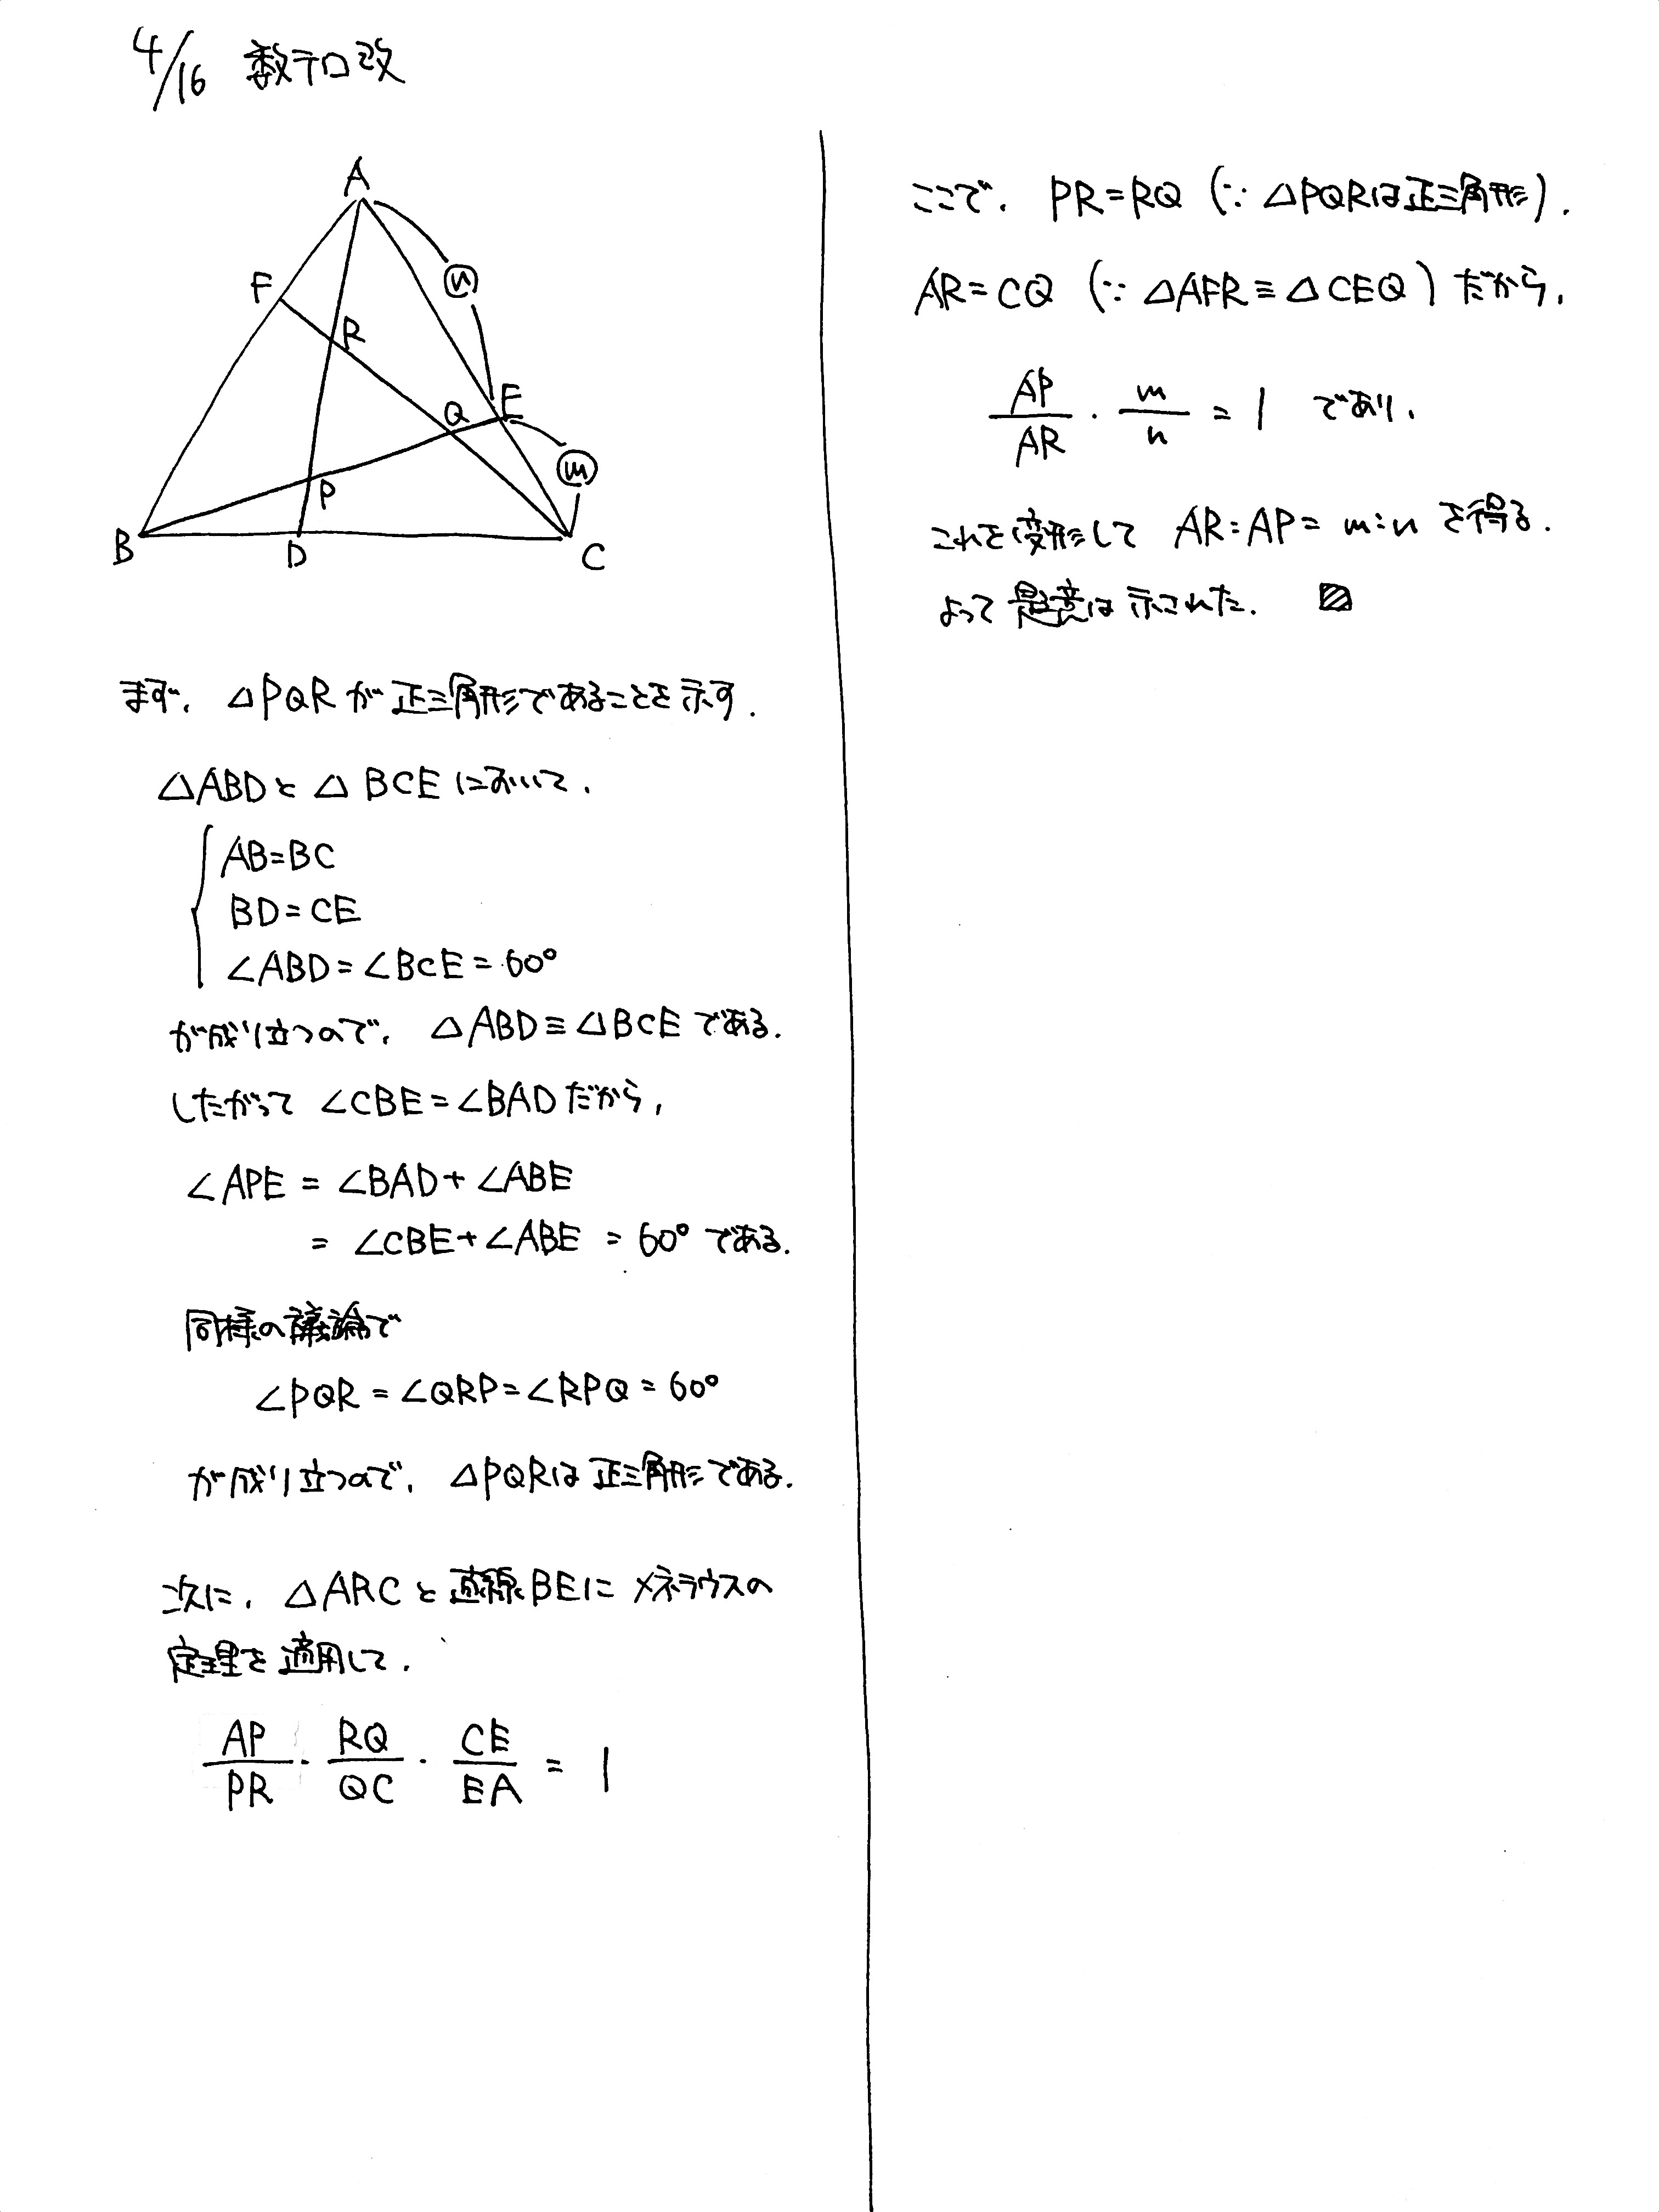 4/16 数テロ改
A
F
n
R
E
Q
m
P
B
D
C
まず、△PQRが正三角形であることを示す.
△ABDと△BCEにおいて、
AB=BC
BD=CE
∠ABD=∠BCE=60°
が成り立つので、△ABD≡△BCEである.
したがって∠CBE=∠BADだから,
∠APE = ∠BAD+∠ABE
= ∠CBE+∠ABE = 60°である.
同様の議論で
∠PQR=∠QRP=∠RPQ=60°
が成り立つので、△PQRは正三角形である.
次に、△ARCと直線BEにメネラウスの
定理を適用して、
AP/PR · RQ/QC · CE/EA = 1
ここで、PR=RQ (∵ △PQRは正三角形).
AR=CQ (∵ △AFR≡△CEQ) だから,
AP/AR · m/n = 1 であり、
これを変形して AR:AP=m:n を得る.
よって題意は示された.